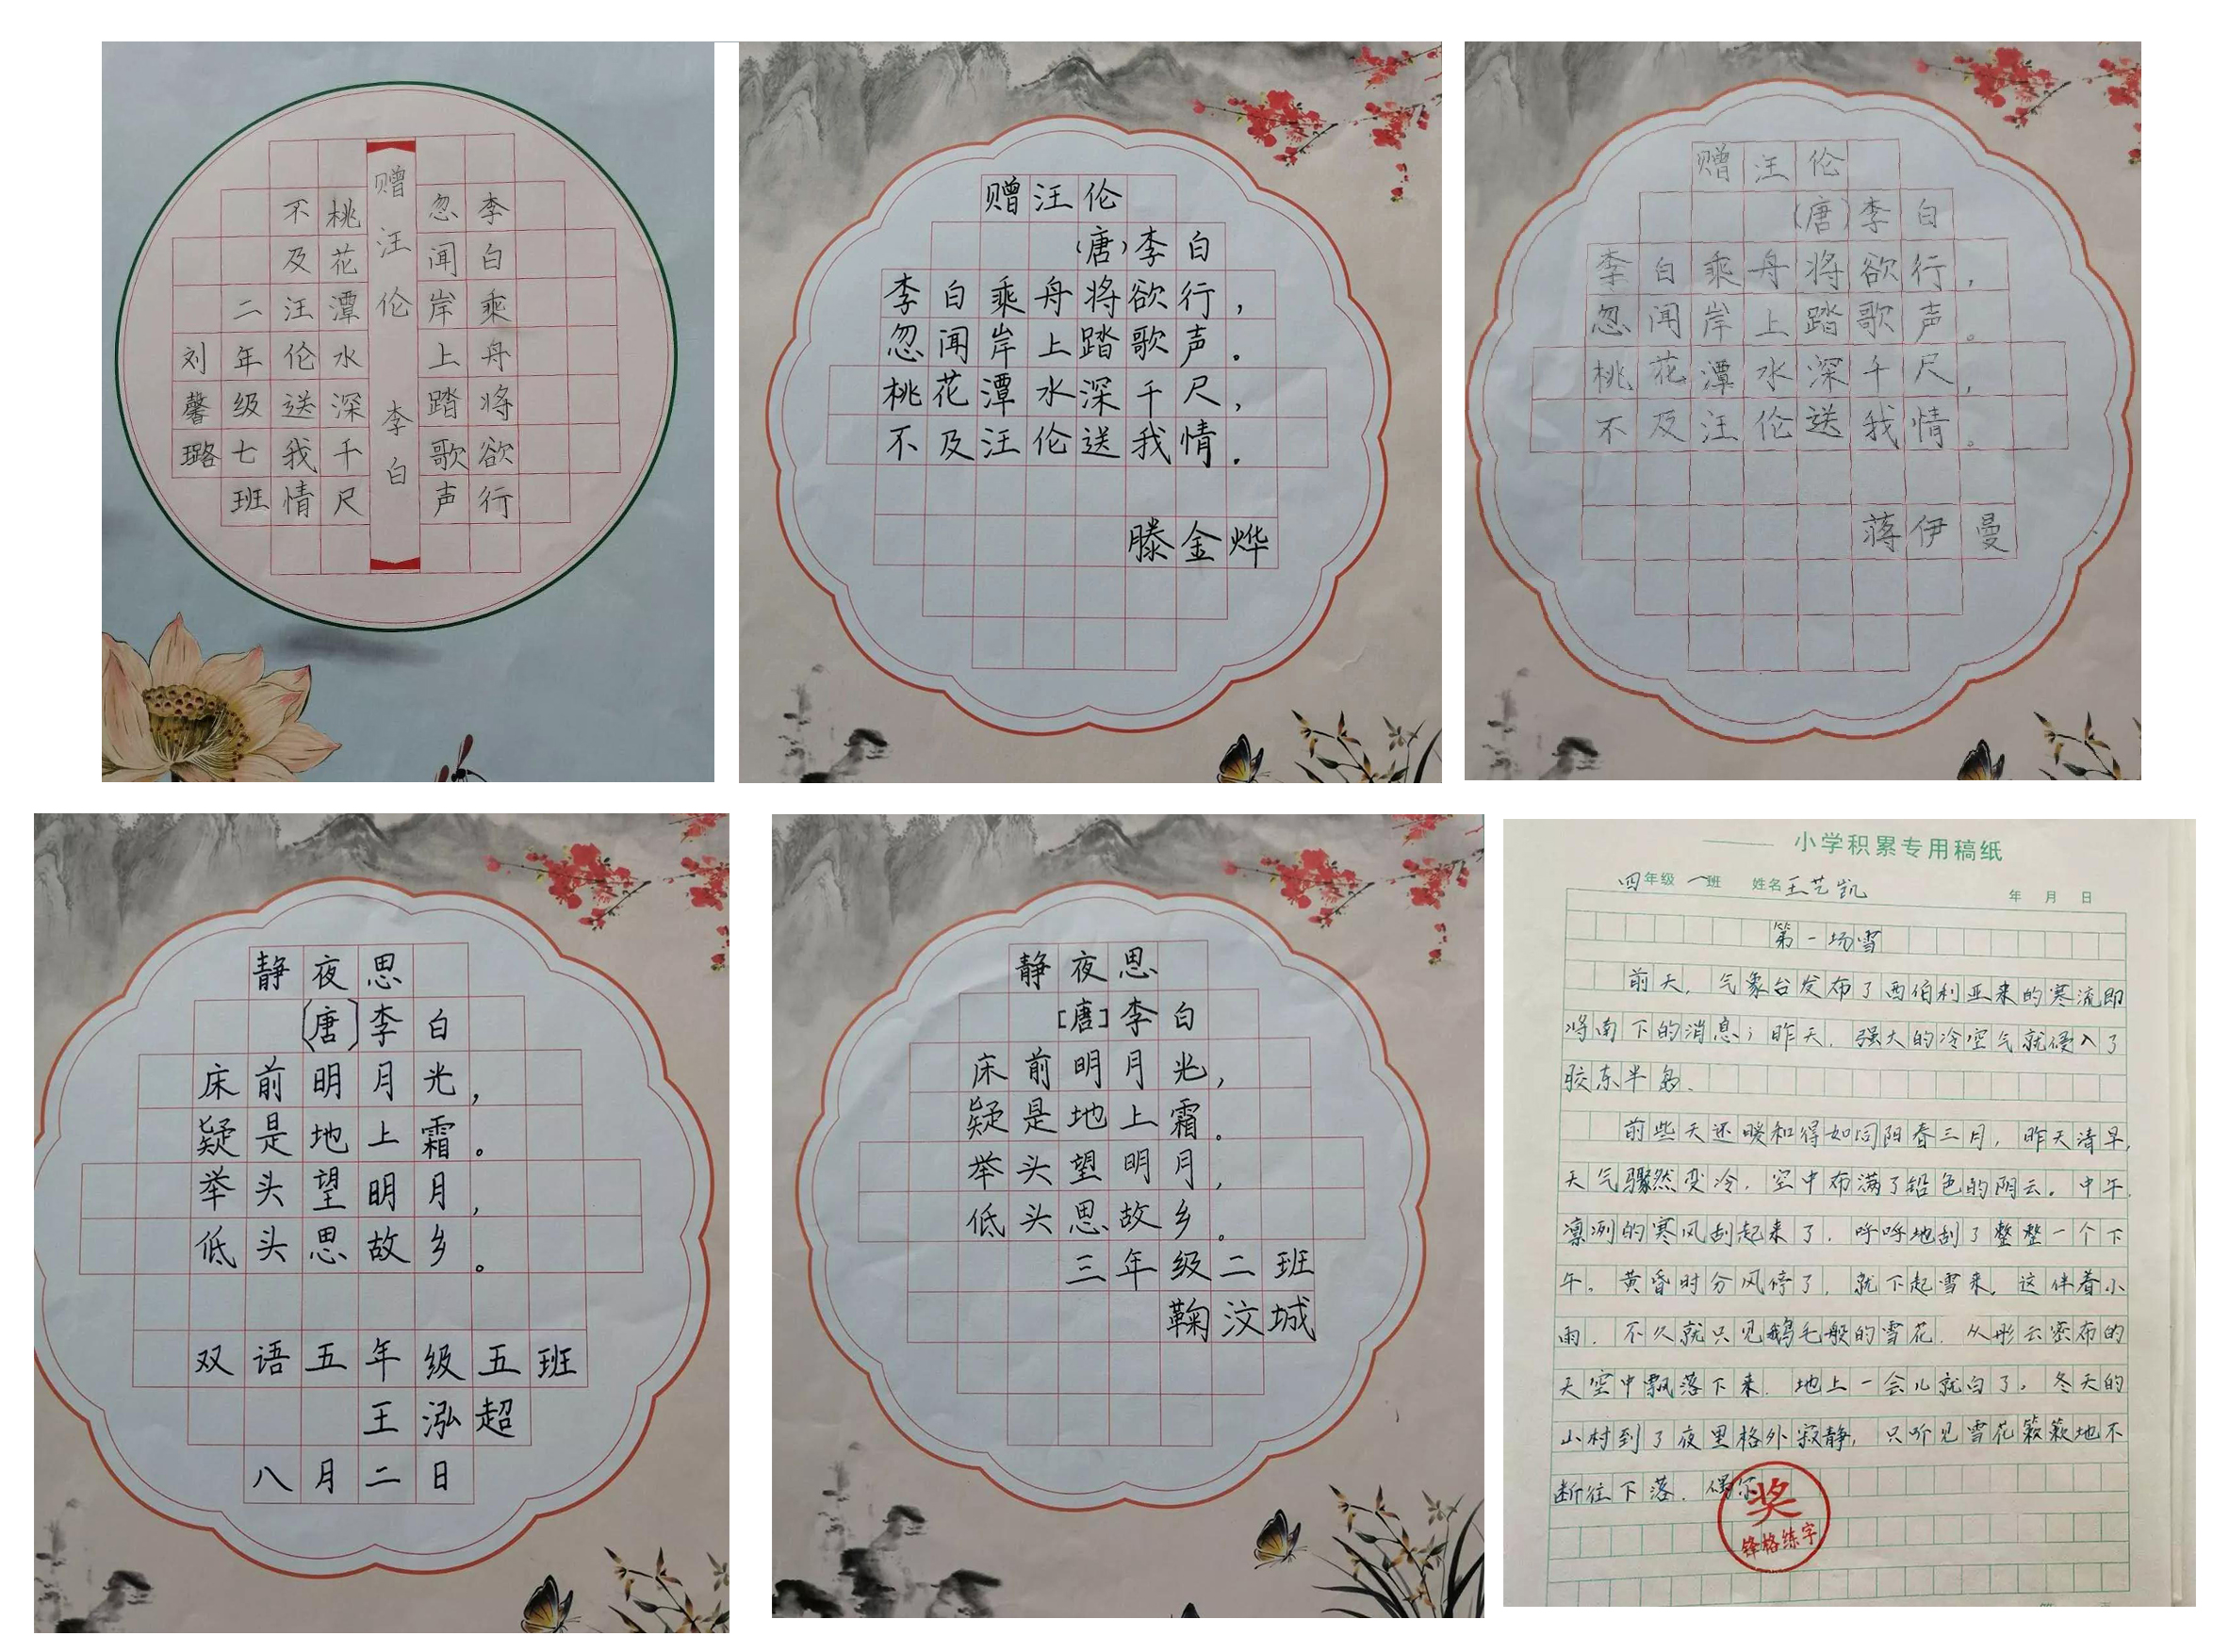 赠汪伦 李白
李白乘舟将欲行
忽闻岸上踏歌声
桃花潭水深千尺
不及汪伦送我情
二年级七班
刘馨璐
赠汪伦
(唐)李白
李白乘舟将欲行，
忽闻岸上踏歌声。
桃花潭水深千尺，
不及汪伦送我情。
滕金烨
赠汪伦
(唐)李白
李白乘舟将欲行，
忽闻岸上踏歌声。
桃花潭水深千尺，
不及汪伦送我情。
蒋伊曼
静夜思
[唐]李白
床前明月光，
疑是地上霜。
举头望明月，
低头思故乡。
双语五年级五班
王泓超
八月二日
静夜思
[唐]李白
床前明月光，
疑是地上霜。
举头望明月，
低头思故乡。
三年级二班
鞠汶城
小学积累专用稿纸
四年级 一班 姓名王艺凯 年 月 日
第一场雪
前天，气象台发布了西伯利亚来的寒流即
将南下的消息；昨天，强大的冷空气就侵入了
胶东半岛。
前些天还暖和得如同阳春三月，昨天清早，
天气骤然变冷，空中布满了铅色的阴云。中午，
凛冽的寒风刮起来了，呼呼地刮了整整一个下
午。黄昏时分风停了，就下起雪来。这伴着小
雨，不久就只见鹅毛般的雪花，从彤云密布的
天空中飘落下来，地上一会儿就白了。冬天的
山村到了夜里格外寂静，只听见雪花簌簌地不
断往下落，偶尔
奖
锋格练字